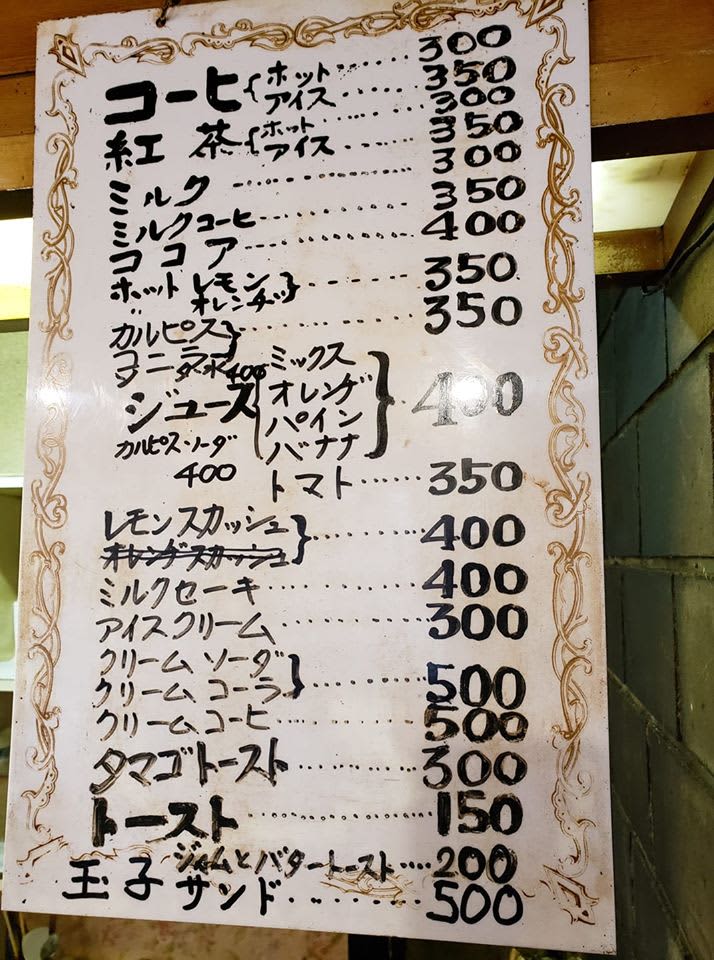 コーヒ{ホット……300
アイス……350
紅茶{ホット……300
アイス……350
ミルク……300
ミルクコーヒ……350
ココア……400
ホット レモン}……350
〃 オレンヂ
カルピス}……350
400
ジュース{ミックス}…400
オレンヂ
パイン
バナナ
カルピス・ソーダ
400
トマト……350
レモンスカッシュ}……400
オレンヂスカッシュ
ミルクセーキ……400
アイスクリーム……300
クリームソーダ}……500
クリームコーラ
クリームコーヒ……500
タマゴトースト……300
トースト……150
ジャムとバタートースト…200
玉子サンド……500